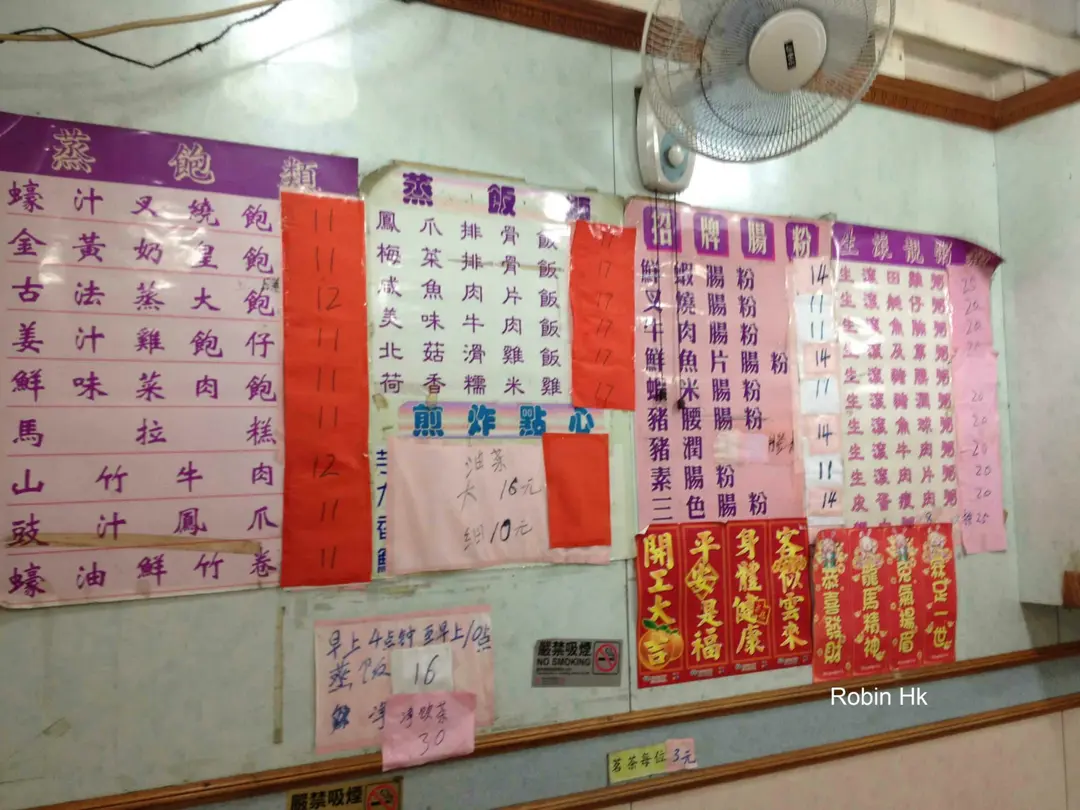 蒸飽類
蠔汁叉燒飽 11
金黃奶皇飽 11
古法蒸大飽 12
姜汁雞飽仔 11
鮮味菜肉飽 11
馬拉糕 11
山竹牛肉 12
豉汁鳳爪 11
蠔油鮮竹卷 11
蒸飯
鳳爪排骨飯 17
梅菜排骨飯 17
咸魚肉片飯 17
美味牛肉飯 17
北菇滑雞飯 17
荷香糯米雞 17
煎炸點心
油菜
大 16元
細 10元
招牌腸粉
鮮蝦腸粉 14
叉燒腸粉 11
牛肉腸粉 11
鮮魚片腸粉 14
蝦米腸粉 11
豬腰腸粉
豬潤 14
素腸粉 11
三色腸粉 14
生滾靚粥
生滾田雞粥 25
生滾艇仔粥 20
生滾魚腩粥 20
生滾及第粥 20
生滾豬膶粥
生滾豬潤粥 20
生滾魚球粥
生滾牛肉粥 20
生滾肉片粥 20
皮蛋瘦肉粥 20
25
開工大吉
平安是福
身體健康
客似雲來
恭喜發財
龍馬精神
兔氣揚眉
豐足一世
早上4点钟至早上10点
蒸飯 16
淨
淨油菜
30
嚴禁吸煙
NO SMOKING
Robin Hk
茗茶每位3元
嚴禁吸煙